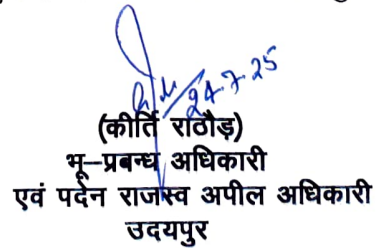 24-7-25
(कीर्ति राठौड़)
भू–प्रबन्ध अधिकारी
एवं पदेन राजस्व अपील अधिकारी
उदयपुर